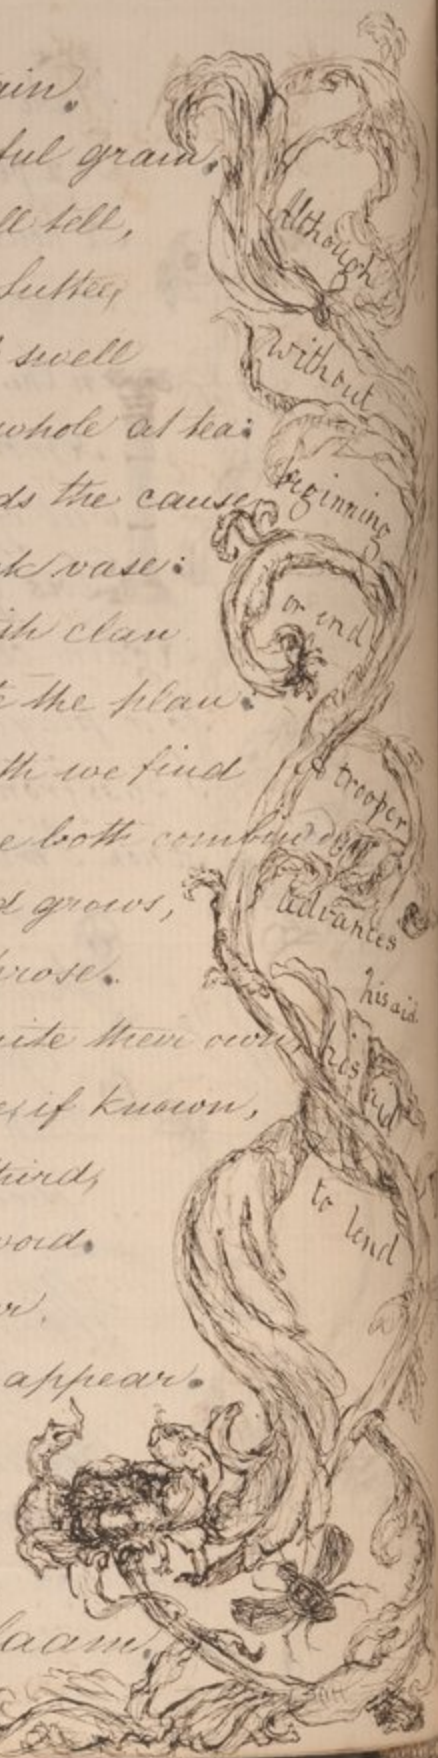 ain.
ful grain.
ll tell,
suttee,
swell
whole at tea:
ds the cause,
k vase:
ish clan
the plan.
th we find
e both combin'd
d grows,
prose.
uite their own,
if known,
third,
word.
r.
appear.
laam.
Although
without
beginning
or end
trooper
advances
his aid
his aid
to lend